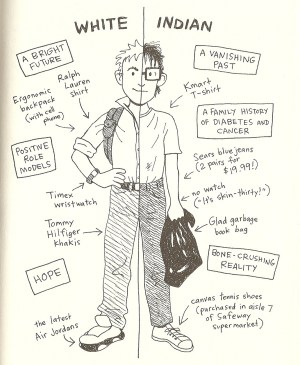 WHITE INDIAN
A BRIGHT
FUTURE
A VANISHING
PAST
Ralph
Lauren
shirt
Ergonomic
backpack
(with cell
phone)
Kmart
T-shirt
A FAMILY HISTORY
OF DIABETES AND
CANCER
POSITIVE
ROLE
MODELS
Sears blue jeans
(2 pairs for
$19.99!)
Timex
wristwatch
no watch
("It's skin-thirty!")
Tommy
Hilfiger
Khakis
Glad garbage
book bag
BONE-CRUSHING
REALITY
HOPE
canvas tennis shoes
(purchased in aisle 7
of Safeway
supermarket)
the latest
Air Jordans